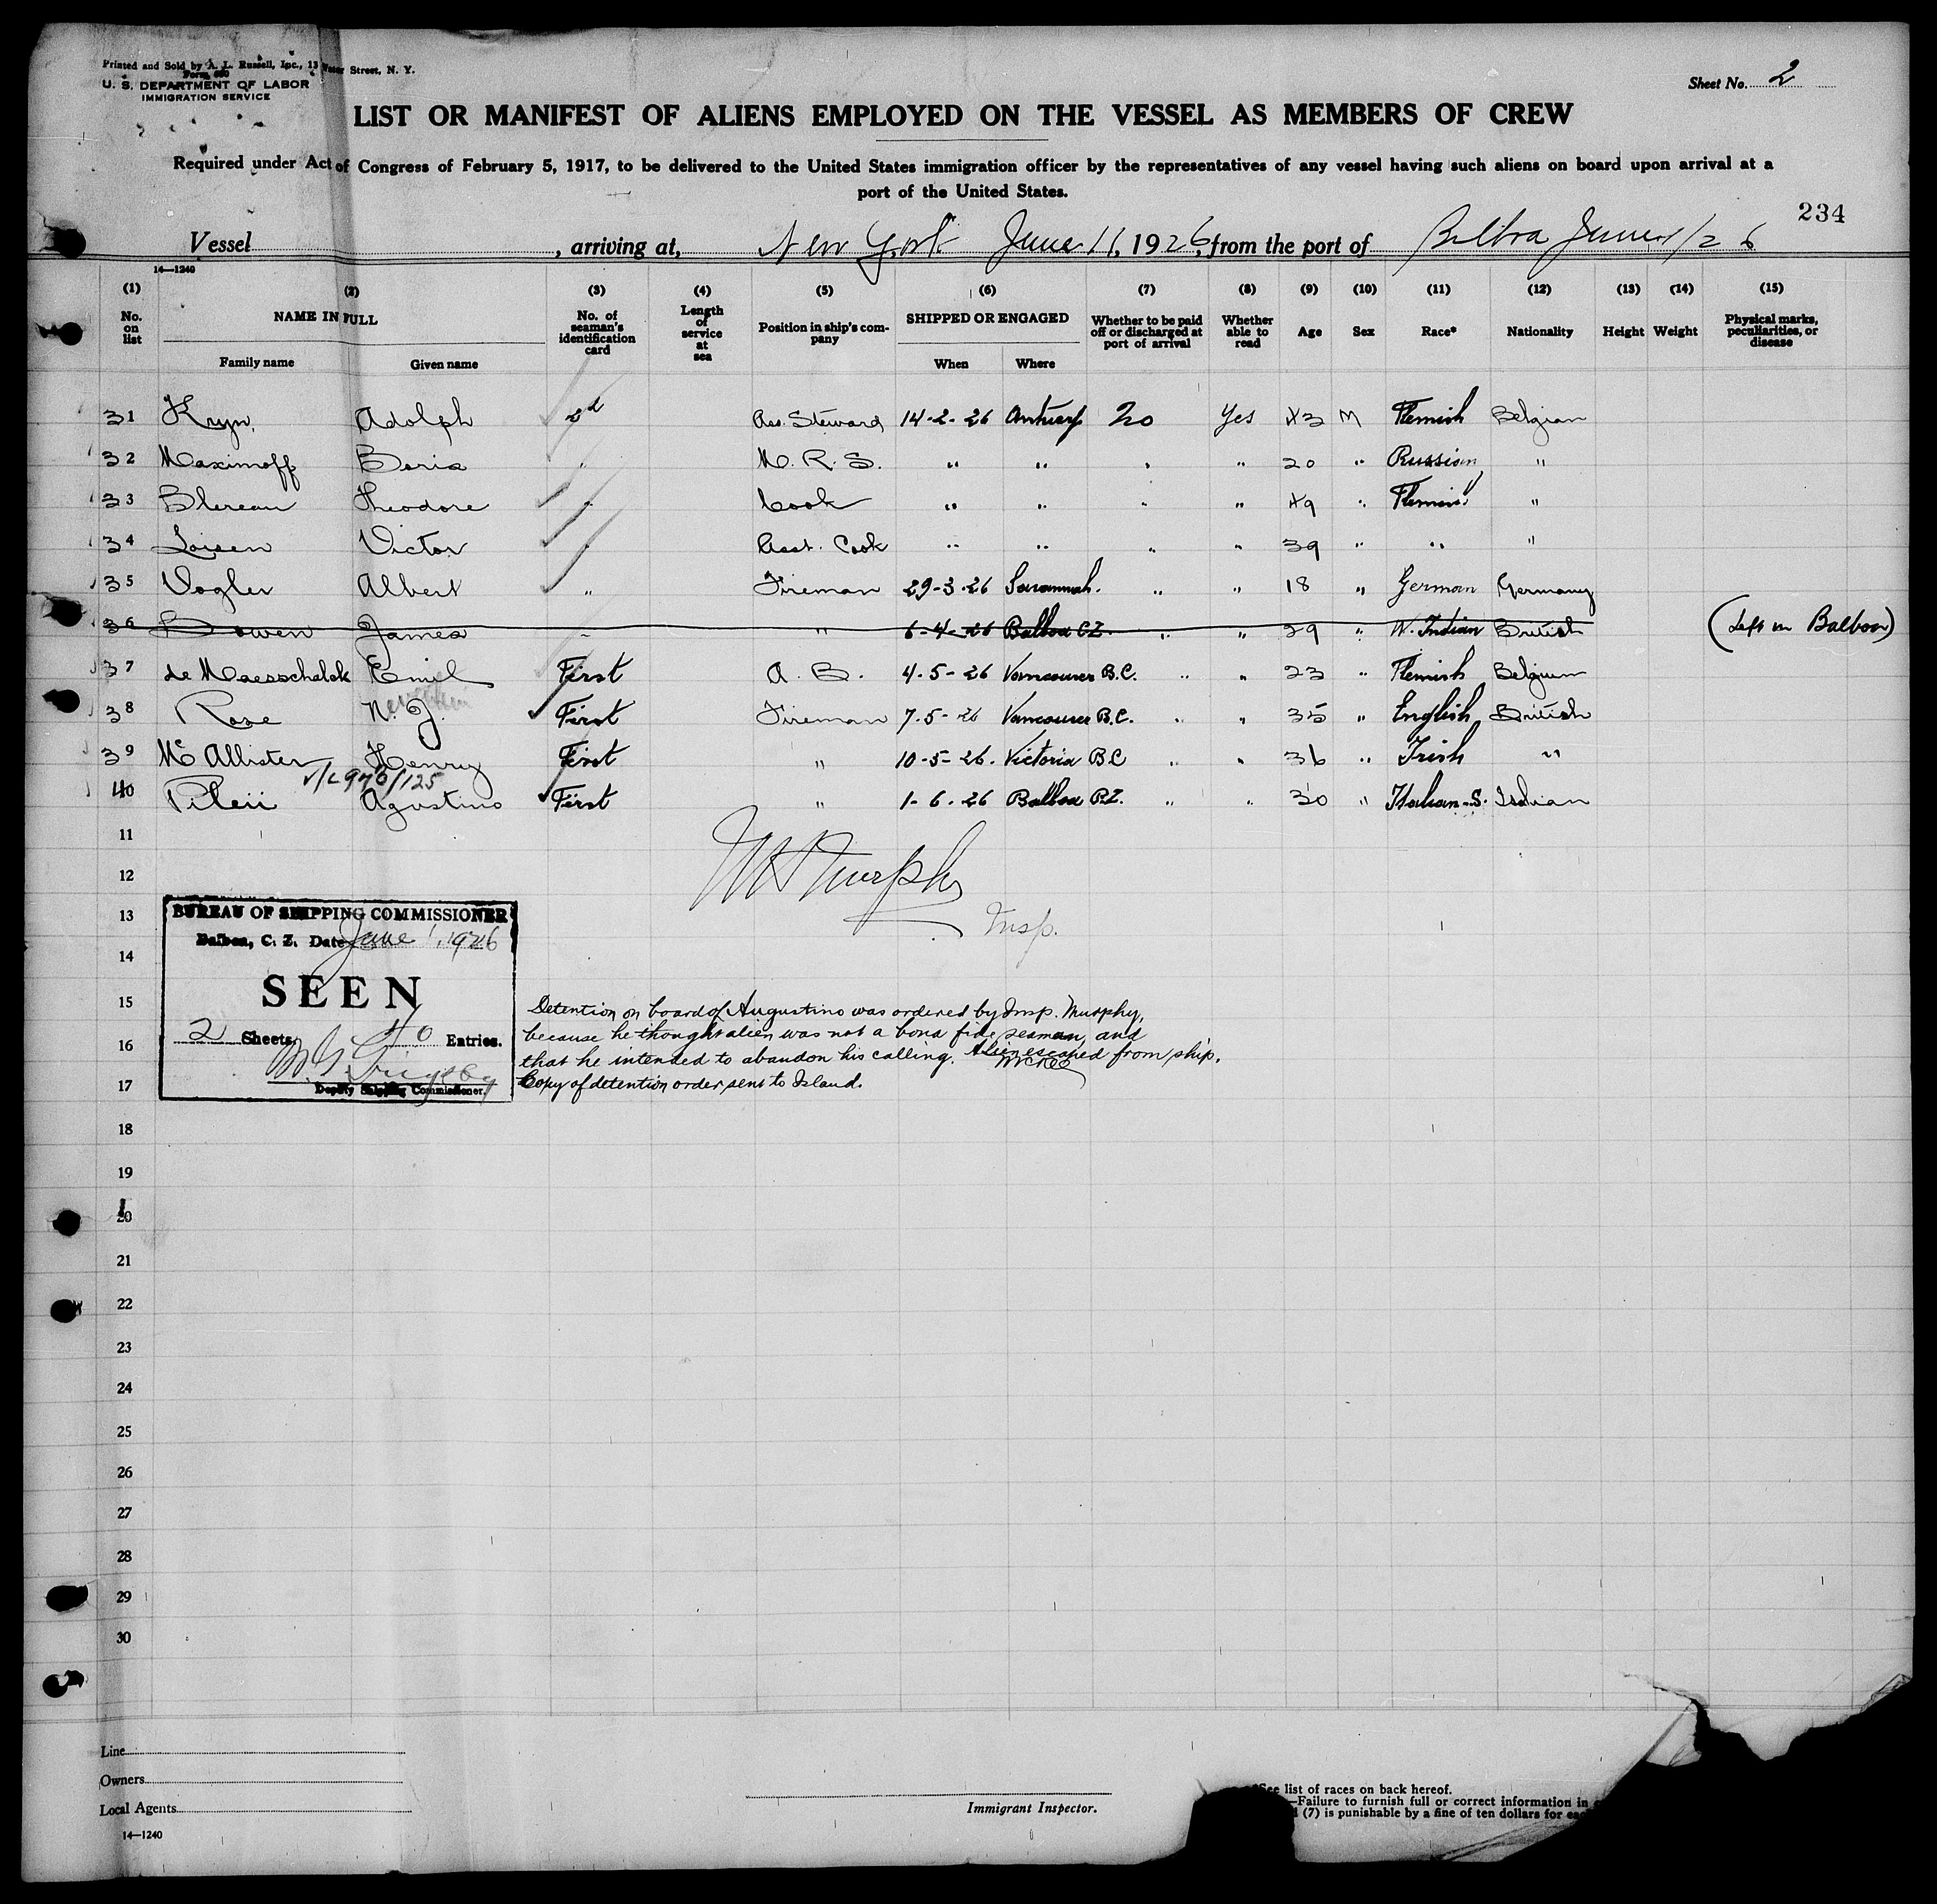 Printed and Sold by A. L. Russell, Inc., 13 Water Street, N. Y.
Form 680
U. S. DEPARTMENT OF LABOR
IMMIGRATION SERVICE
Sheet No. 2
LIST OR MANIFEST OF ALIENS EMPLOYED ON THE VESSEL AS MEMBERS OF CREW
Required under Act of Congress of February 5, 1917, to be delivered to the United States immigration officer by the representatives of any vessel having such aliens on board upon arrival at a
port of the United States.
234
Vessel , arriving at, New York June 11, 1926, from the port of Balboa June 1/26
14—1240
(1) (2) (3) (4) (5) (6) (7) (8) (9) (10) (11) (12) (13) (14) (15)
No. on list NAME IN FULL Family name Given name No. of seaman's identification card Length of service at sea Position in ship's company SHIPPED OR ENGAGED When Where Whether to be paid off or discharged at port of arrival Whether able to read Age Sex Race* Nationality Height Weight Physical marks, peculiarities, or disease
31 Kryn, Adolph 2d Ass. Steward 14-2-26 Antwerp No Yes 43 M Flemish Belgian
32 Maximoff Boris " M. R. S. " " " " 20 " Russian "
33 Blereau Theodore " Cook " " " " 49 " Flemish "
34 Loisen Victor " Asst. Cook " " " " 39 " " "
35 Vogler Albert " Fireman 29-3-26 Savannah. " " 18 " German Germany
36 Bowen James " " 6-4-26 Balboa C.Z. " " 29 " W. Indian British (Left in Balboa)
37 de Maesschalck Emil First A. B. 4-5-26 Vancouver B.C. " " 23 " Flemish Belgium
38 Rose N. J. First Fireman 7-5-26 Vancouver B.C. " " 35 " English British
39 McAllister Henry First " 10-5-26. Victoria B.C " " 36 " Irish "
40 Agostino First " 1-6-26 Balboa " " 30 " Italian-S. Italian
11
12
13
14
15
16
17
18
19
20
21
22
23
24
25
26
27
28
29
30
Murphy
Insp.
BUREAU OF SHIPPING COMMISSIONER
Balboa, C. Z. Date June 1, 1926
SEEN
2 Sheets, 40 Entries.
Deputy Shipping Commissioner.
Detention on board of Augustino was ordered by Insp. Murphy,
because he thought alien was not a bona fide seaman and
that he intended to abandon his calling. Alien escaped from ship.
Copy of detention order sent to Island.
Line
Owners
Local Agents
14—1240
Immigrant Inspector.
*See list of races on back hereof.
—Failure to furnish full or correct information in
(7) is punishable by a fine of ten dollars for each